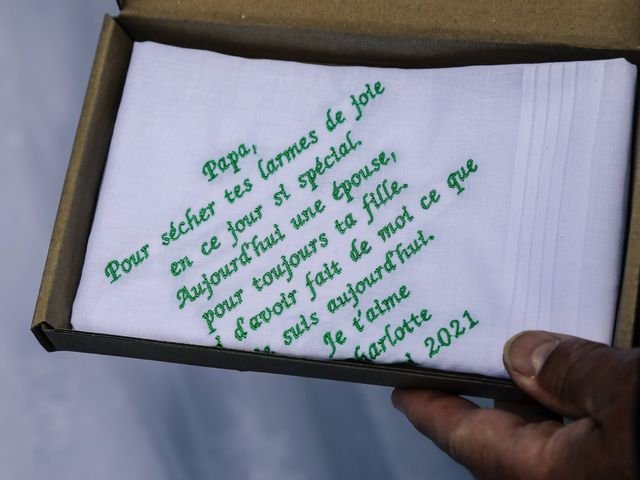 Papa,
Pour sécher tes larmes de joie
en ce jour si spécial.
Aujourd'hui une épouse,
pour toujours ta fille.
d'avoir fait de moi ce que
suis aujourd'hui.
Je t'aime
harlotte
2021